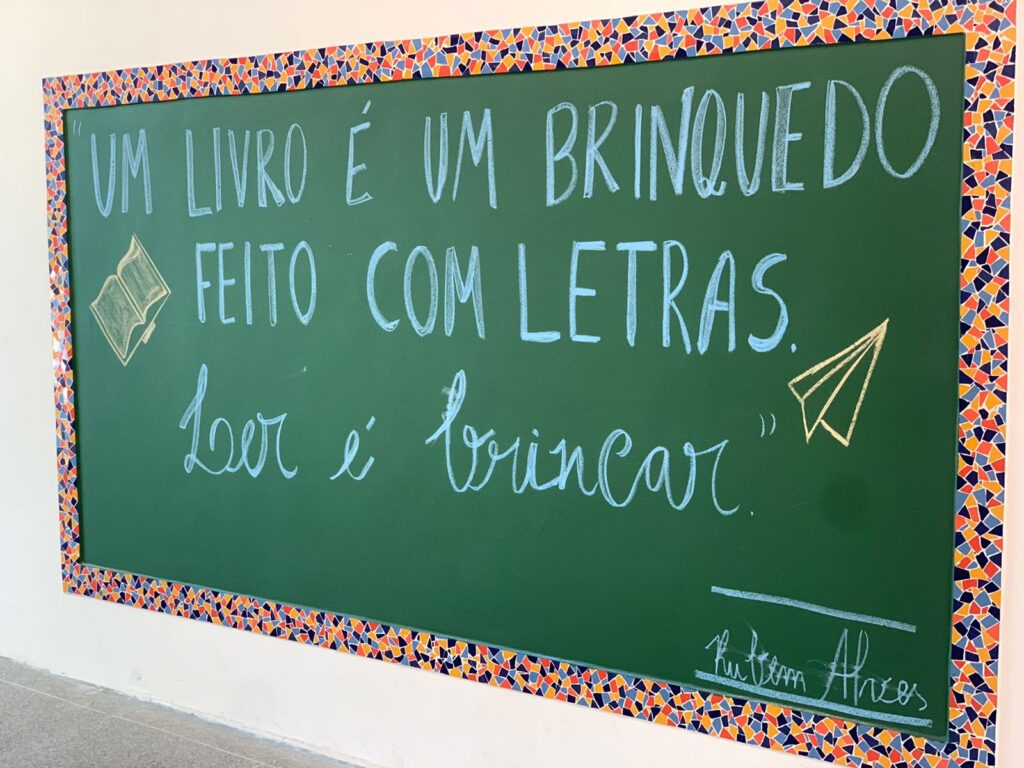 "UM LIVRO É UM BRINQUEDO
FEITO COM LETRAS.
Ler é brincar".
Rubem Alves